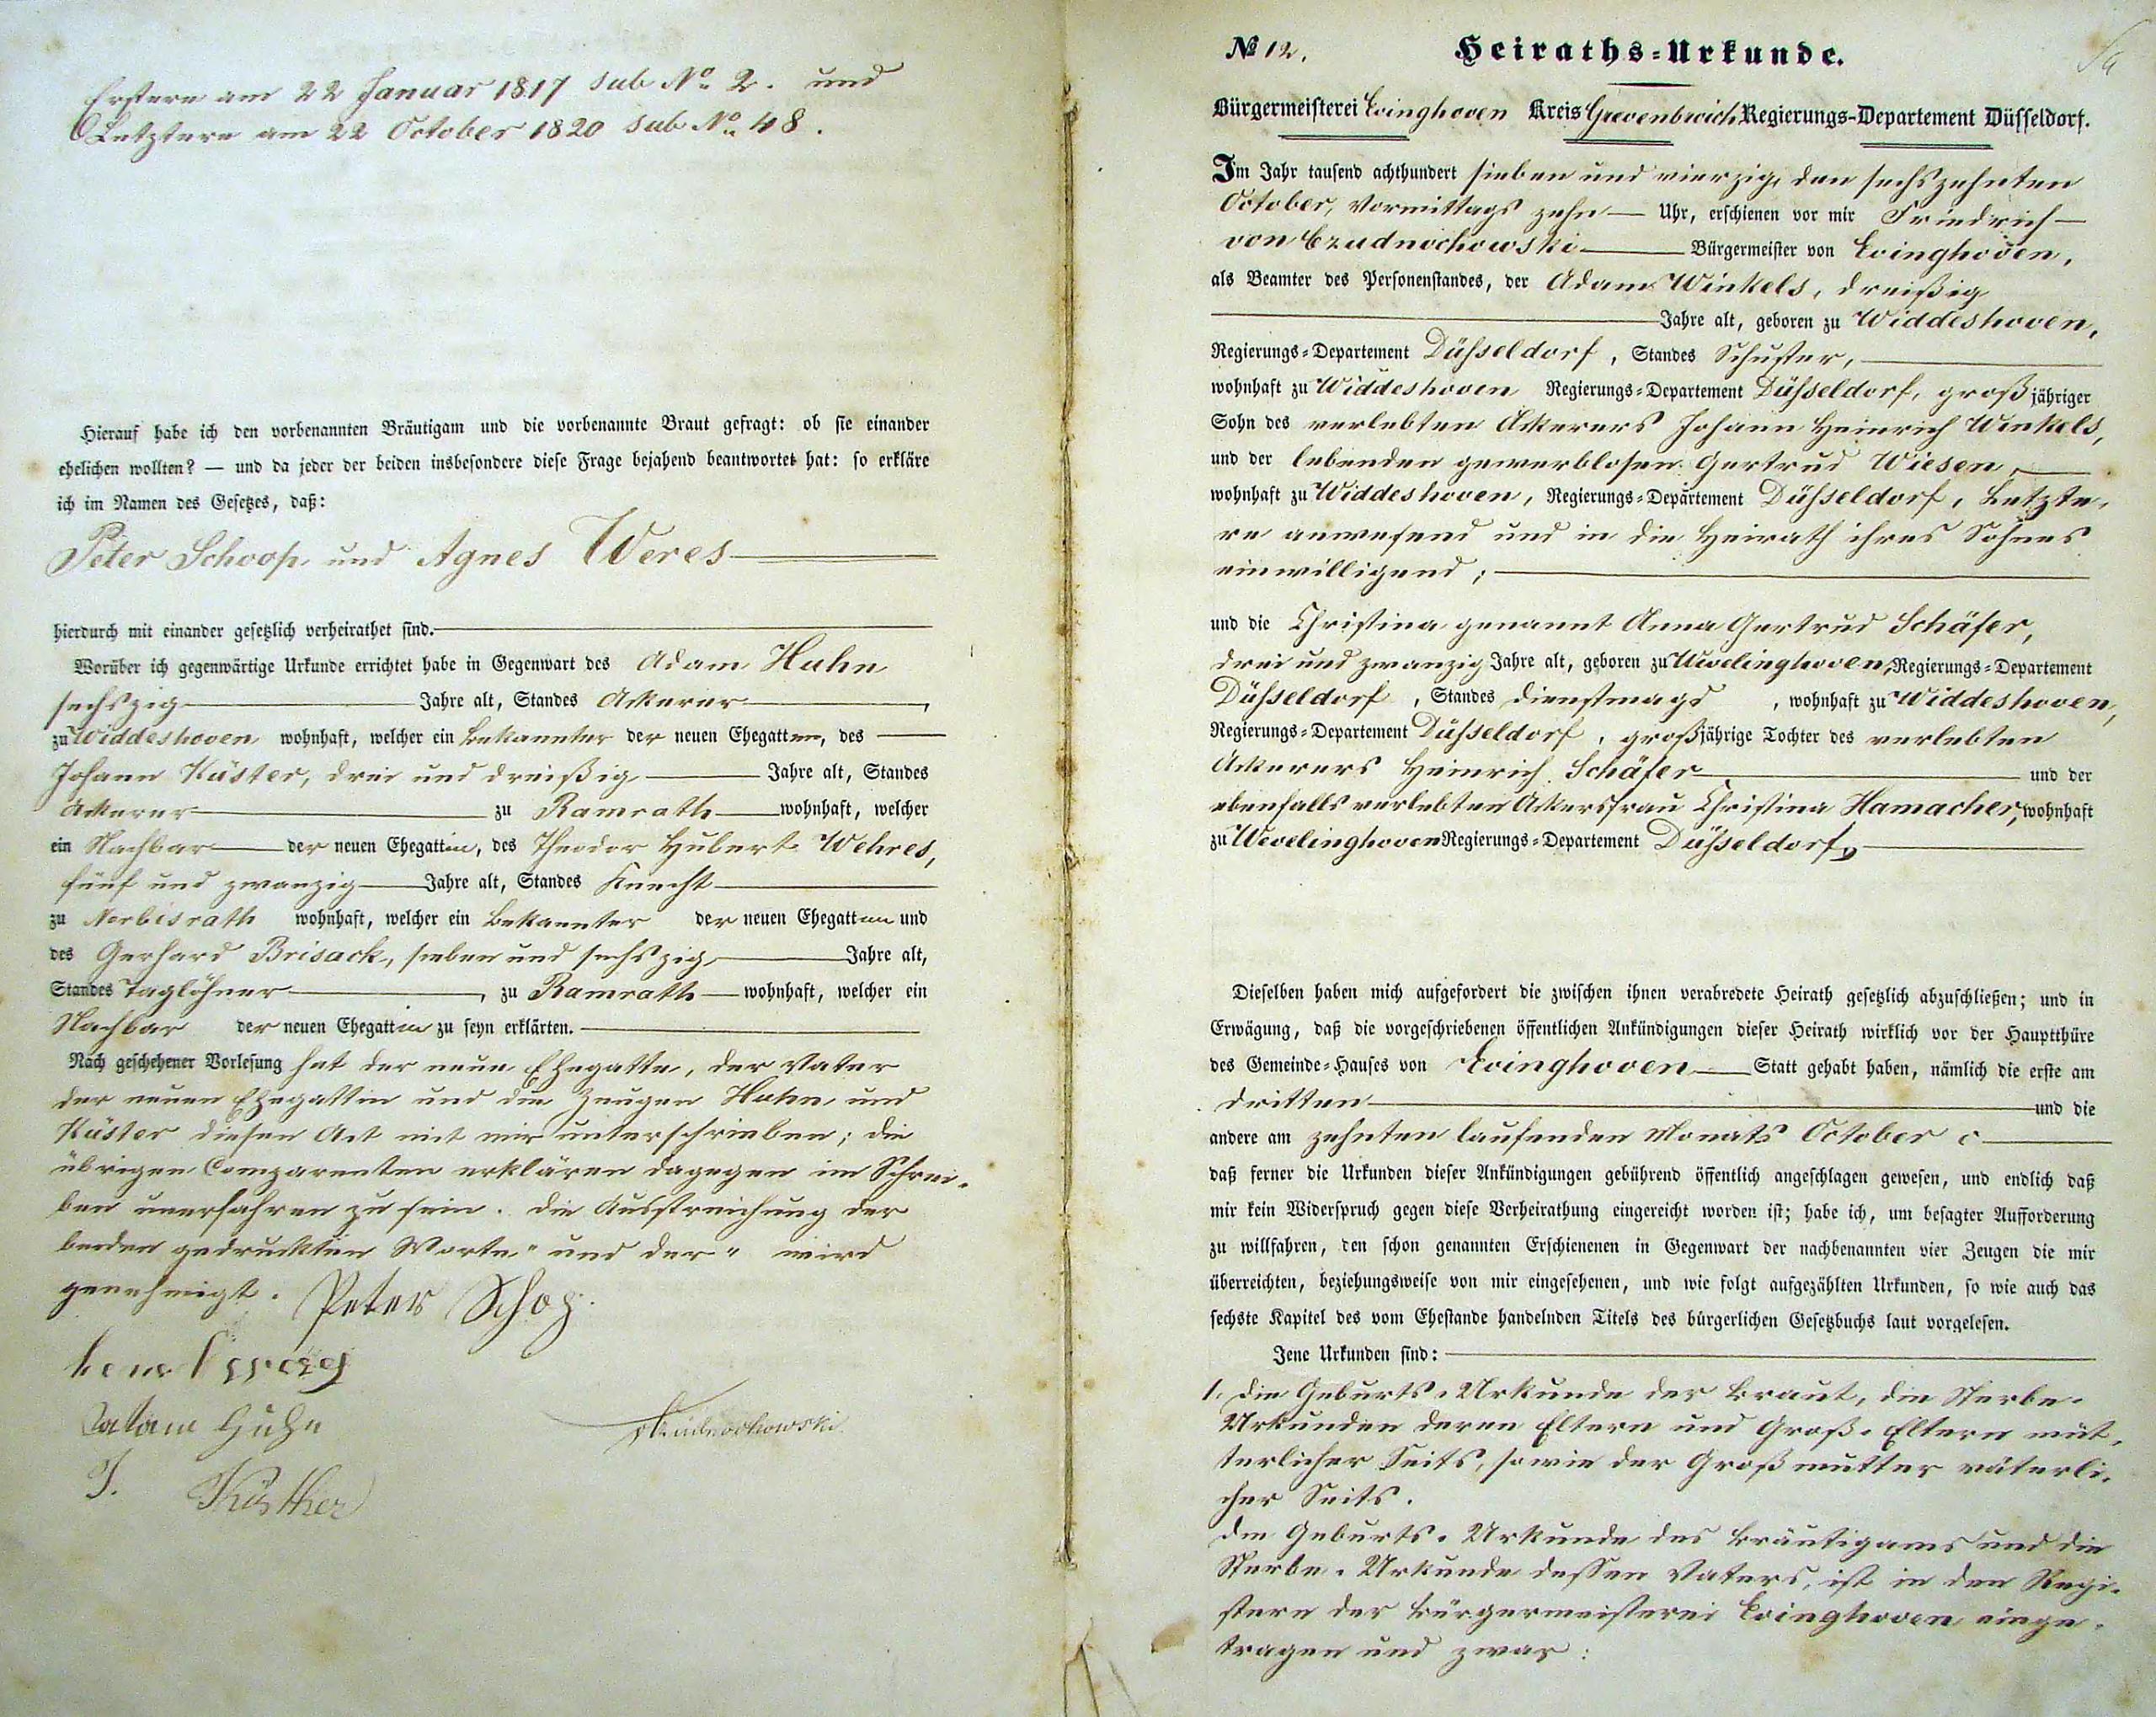 Erstere am 22 Januar 1817 sub No 2. und
Letztere am 22 October 1820 sub No 48.
Hierauf habe ich den vorbenannten Bräutigam und die vorbenannte Braut gefragt: ob sie einander
ehelichen wollten? — und da jeder der beiden insbesondere diese Frage bejahend beantwortet hat: so erkläre
ich im Namen des Gesetzes, daß:
Peter Schoop und Agnes Weres
hierdurch mit einander gesetzlich verheirathet sind.
Worüber ich gegenwärtige Urkunde errichtet habe in Gegenwart des Adam Hahn
sechszig Jahre alt, Standes Ackerer,
zu Widdeshoven wohnhaft, welcher ein Bekannter der neuen Ehegatten, des
Johann Küster, drei und dreißig Jahre alt, Standes
Ackerer zu Ramrath wohnhaft, welcher
ein Nachbar der neuen Ehegattin, des Theodor Hubert Wehres,
fünf und zwanzig Jahre alt, Standes Knecht
zu Norbisrath wohnhaft, welcher ein Bekannter der neuen Ehegatten und
des Gerhard Brisack, sieben und sechszig Jahre alt,
Standes Taglöhner, zu Ramrath wohnhaft, welcher ein
Nachbar der neuen Ehegattin zu seyn erklärten.
Nach geschehener Vorlesung hat der neue Ehegatte, der Vater
der neuen Ehegattin und die Zeugen Hahn und
Küster diesen Act mit mir unterschrieben; die
übrigen Comparenten erklären dagegen im Schrei-
ben unerfahren zu sein. Die Ausstreichung der
beiden gedruckten Worte "und der" wird
genehmigt. Peter Schop
J. Küsther
No 12. Heiraths-Urkunde.
Bürgermeisterei Evinghoven Kreis Grevenbroich Regierungs-Departement Düsseldorf.
Im Jahr tausend achthundert sieben und vierzig, den sechszehnten
October, Vormittags zehn Uhr, erschienen vor mir Friedrich
von Czudnochowski Bürgermeister von Evinghoven,
als Beamter des Personenstandes, der Adam Winkels, dreißig
Jahre alt, geboren zu Widdeshoven,
Regierungs-Departement Düsseldorf, Standes Schuster,
wohnhaft zu Widdeshoven Regierungs-Departement Düsseldorf, großjähriger
Sohn des verlebten Ackerers Johann Heinrich Winkels,
und der lebenden gewerblosen Gertrud Wiesen,
wohnhaft zu Widdeshoven, Regierungs-Departement Düsseldorf, Letzte-
re anwesend und in die Heirath ihres Sohnes
einwilligend;
und die Christina genannt Anna Gertrud Schäfer,
drei und zwanzig Jahre alt, geboren zu Wevelinghoven, Regierungs-Departement
Düsseldorf, Standes Dienstmagd, wohnhaft zu Widdeshoven,
Regierungs-Departement Düsseldorf, großjährige Tochter des verlebten
Ackerers Heinrich Schäfer und der
ebenfalls verlebten Ackersfrau Christina Hamacher, wohnhaft
zu Wevelinghoven Regierungs-Departement Düsseldorf,
Dieselben haben mich aufgefordert die zwischen ihnen verabredete Heirath gesetzlich abzuschließen; und in
Erwägung, daß die vorgeschriebenen öffentlichen Ankündigungen dieser Heirath wirklich vor der Hauptthüre
des Gemeinde-Hauses von Evinghoven Statt gehabt haben, nämlich die erste am
dritten und die
andere am zehnten laufenden Monats October c
daß ferner die Urkunden dieser Ankündigungen gebührend öffentlich angeschlagen gewesen, und endlich daß
mir kein Widerspruch gegen diese Verheirathung eingereicht worden ist; habe ich, um besagter Aufforderung
zu willfahren, den schon genannten Erschienenen in Gegenwart der nachbenannten vier Zeugen die mir
überreichten, beziehungsweise von mir eingesehenen, und wie folgt aufgezählten Urkunden, so wie auch das
sechste Kapitel des vom Ehestande handelnden Titels des bürgerlichen Gesetzbuchs laut vorgelesen.
Jene Urkunden sind:
1. die Geburts-Urkunde der Braut, die Sterbe-
Urkunden deren Eltern und Groß-Eltern müt-
terlicher Seits, sowie der Großmutter väterli-
cher Seits.
Die Geburts-Urkunde des Bräutigams und die
Sterbe-Urkunde dessen Vaters, ist in den Regi-
stern der Bürgermeisterei Evinghoven einge-
tragen und zwar: